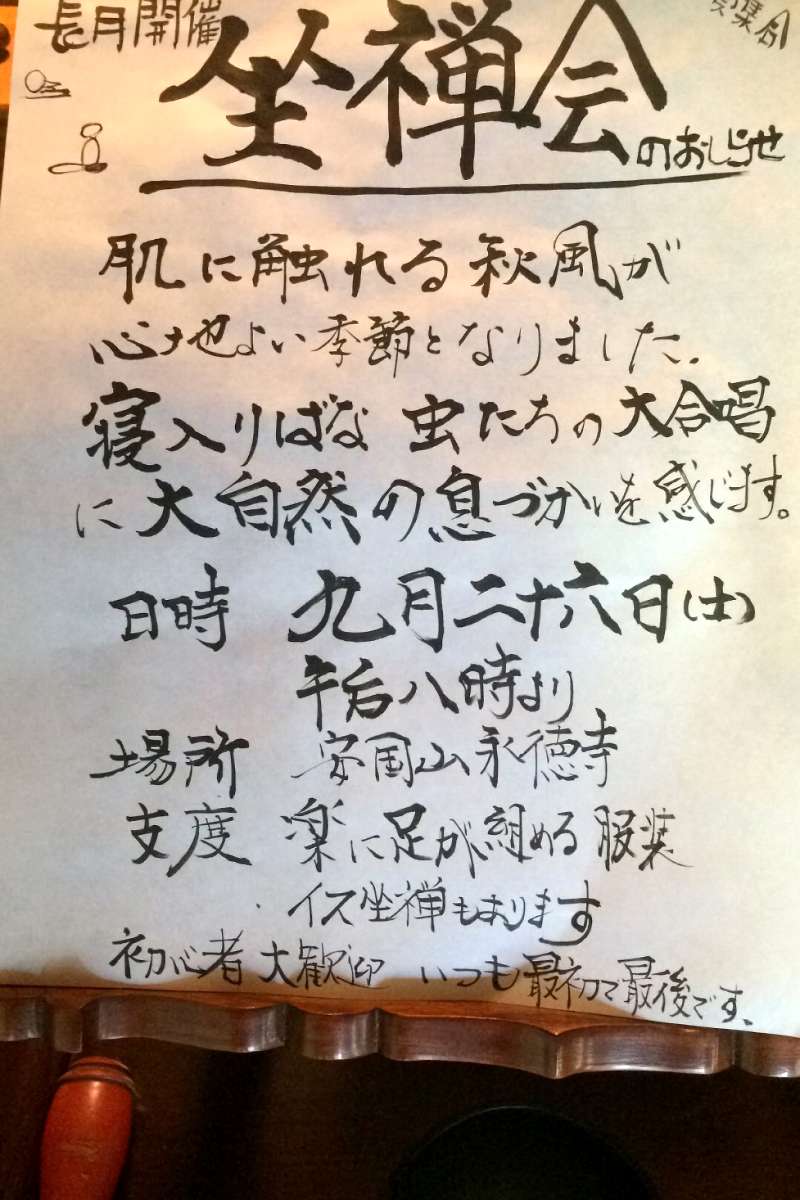 長月開催
坐禅会のおしらせ
肌に触れる秋風が
心地よい季節となりました.
寝入りばな 虫たちの大合唱
に大自然の息づかいを感じます。
日時 九月二十六日(土)
午后八時より
場所 安国山永徳寺
支度 楽に足が組める服装
イス坐禅もあります
初心者大歓迎 いつも最初で最後です、